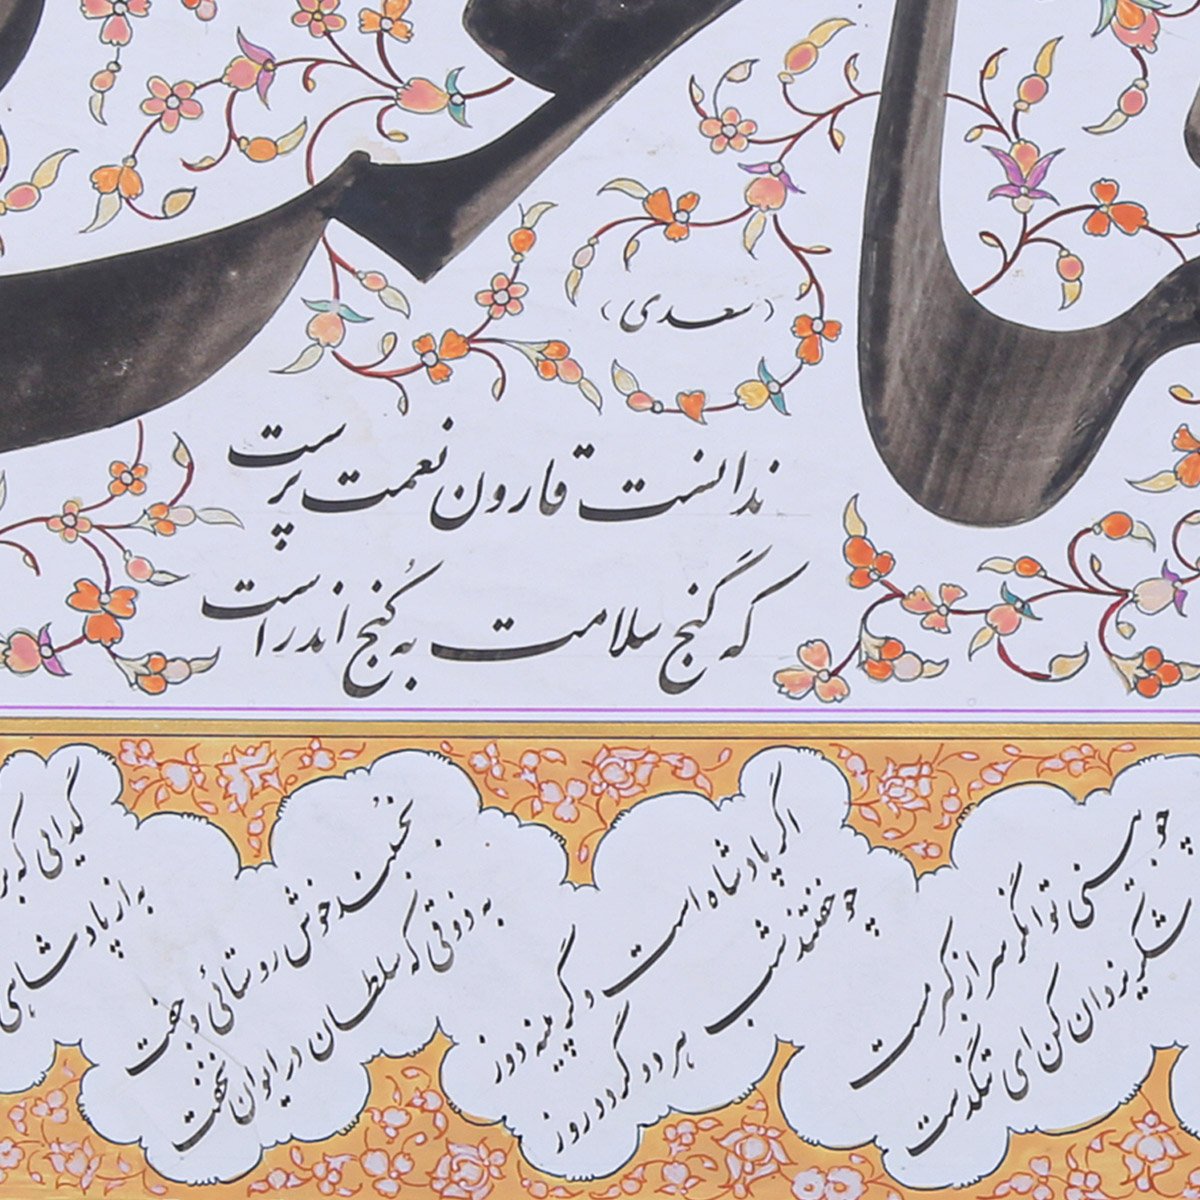 (سعدی)
ندانست قارون نعمت پرست
که گنج سلامت به کُنج اندر است
چو بینی توانگر سر از کبر مست
شکر یزدان کن ای تنگدست
اگر پادشاه است و گر پینه دوز
چو خفتند شب هر دو گردد روز
بخُسبند خوش روستائی وُ جفت
به ذوقی که سلطان در ایوان نخفت
گدایی که
به از پادشاهی